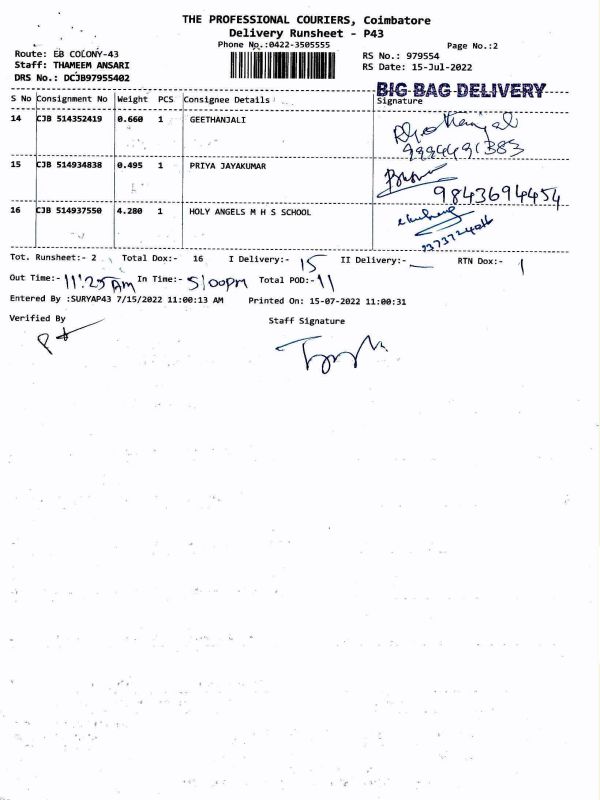 THE PROFESSIONAL COURIERS, Coimbatore
Delivery Runsheet - P43
Phone No.:0422-3505555
Page No.:2
Route: EB COLONY-43
RS No.: 979554
Staff: THAMEEM ANSARI
RS Date: 15-Jul-2022
DRS No.: DCJB97955402
BIG BAG DELIVERY
S No Consignment No Weight PCS Consignee Details Signature
14 CJB 514352419 0.660 1 GEETHANJALI
15 CJB 514934838 0.495 1 PRIYA JAYAKUMAR
9843694454
16 CJB 514937550 4.280 1 HOLY ANGELS M H S SCHOOL
Tot. Runsheet:- 2 Total Dox:- 16 I Delivery:- 15 II Delivery:- — RTN Dox:- 1
Out Time:- 11:25 AM In Time:- 5:00pm Total POD:- 11
Entered By :SURYAP43 7/15/2022 11:00:13 AM Printed On: 15-07-2022 11:00:31
Verified By Staff Signature